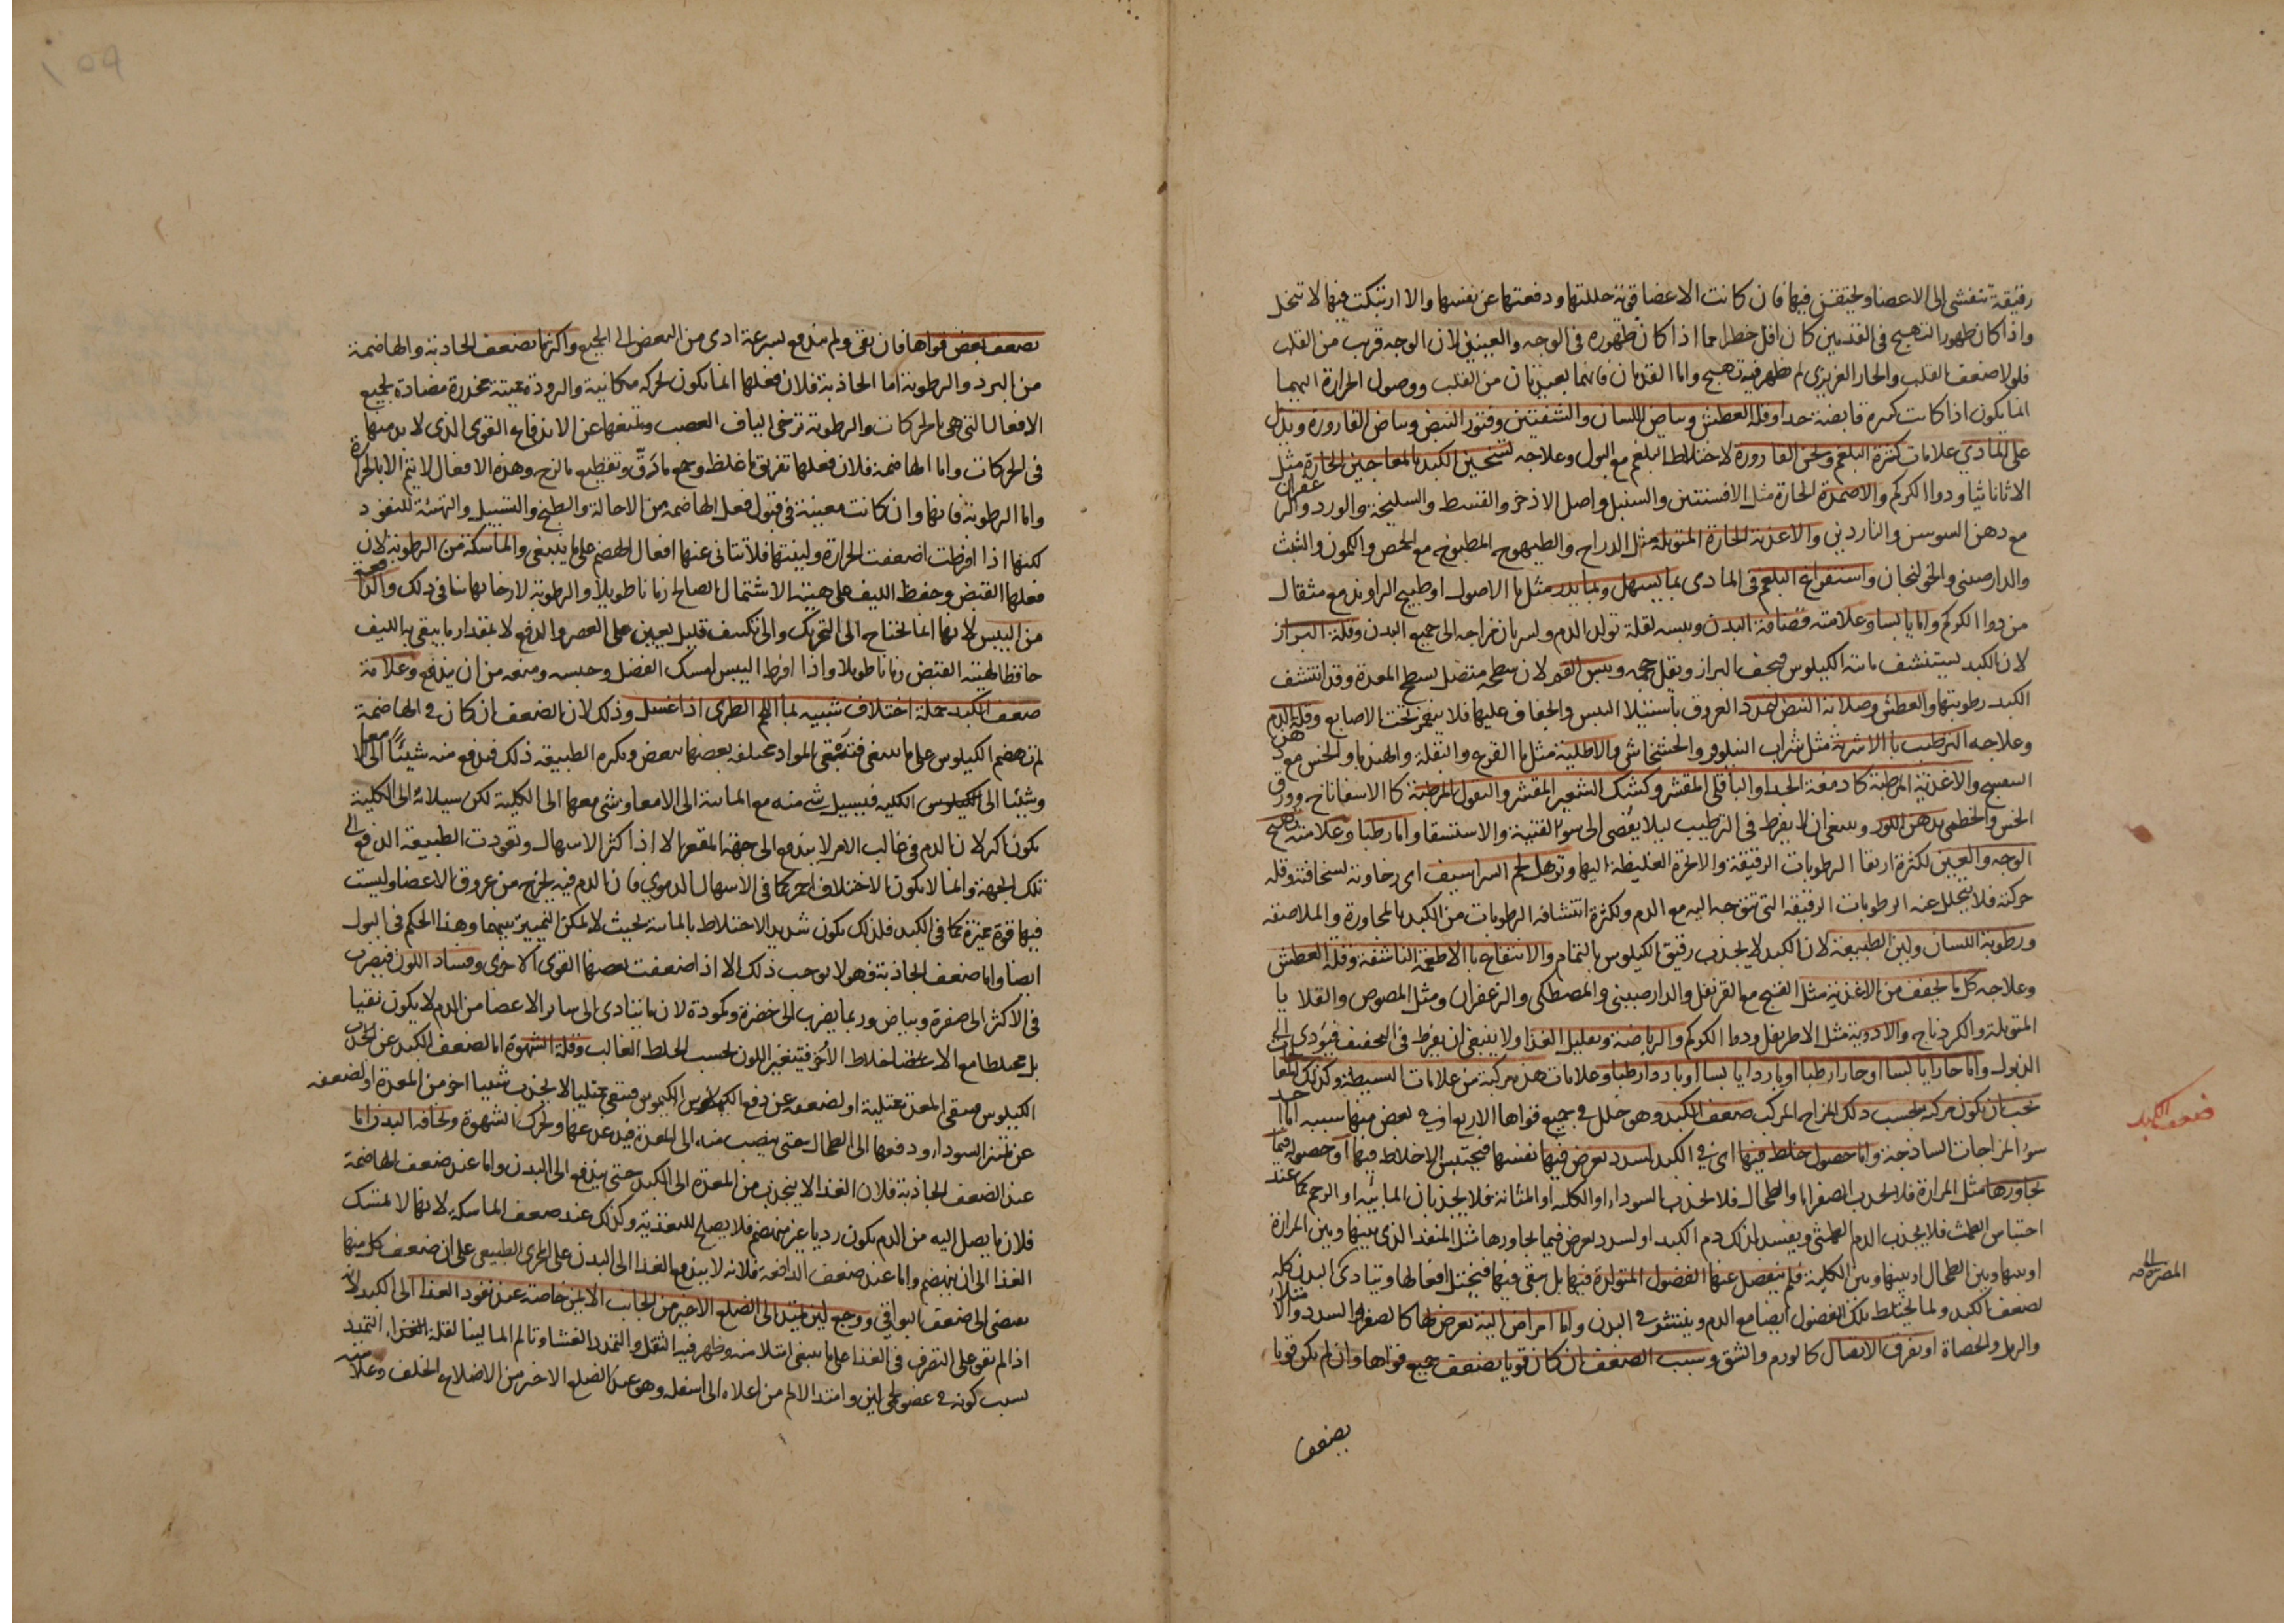 رقيقة تتفشى الى الاعضا وتحتقن فيها فان كانت الاعضا قوية حللتها ودفعتها عن نفسها والا ارتبكت فيها لا تتحلل
واذا كان ظهور التهبج فى القدمين كان اقل خطرا مما اذا كان ظهوره فى الوجه والعينين لان الوجه قريب من القلب
فلولا ضعف القلب والحار الغريزى لم يظهر فيه تهبج واما القدمان فانهما بعيدتان من القلب ووصول الحرارة اليهما
انما يكون اذا كانت كثيرة فايضة جدا وقلة العطش وبياض اللسان والشفتين وفتور النبض وبياض القارورة ويدل
على المادي علامات كثرة البلغم وثخن القارورة لاختلاط البلغم مع البول وعلاجه تسخين الكبد بالمعاجين الحارة مثل
الاثاناثيا ودوا الكركم والاضمدة الحارة مثل الافسنتين والسنبل واصل الاذخر والقسط والسليخة والورد والزعفران
مع دهن السوسن والناردين والاغذية الحارة المتوبلة مثل الدراج والطيهوج المطبوخ مع الحمص والكمون والشبث
والدارصينى والخولنجان واستفراغ البلغم فى المادى بما يسهل وبما يدر مثل ما الاصول او طبيخ الراوند مع مثقال
من دوا الكركم واما يابسا وعلامته قضافة البدن ويبسه لقلة تولد الدم وسريان خراجه الى جميع البدن وقلة البراز
لان الكبد يستنشف مائية الكيلوس فيجف البراز ويقل حجمه ويبس الفم لان سطحه متصل بسطح المعدة وقد انتشف
الكبد رطوبتها والعطش وصلابة النبض لتمدد العروق باستيلا اليبس والجفاف عليها فلا ينغمز تحت الاصابع وقلة الدم
وعلاجه الترطيب بالاشربة مثل شراب النيلوفر والخشخاش والاطلية مثل ما القرع والبقلة والهندبا والخس مع دهن
البنفسج والاغذية المرطبة كادمغة الجداء والباقلى المقشر وكشك الشعير المقشر والبقول المرطبة كالاسفاناخ وورق
الخس والخطمى بدهن اللوز وينبغى ان لا يفرط فى الترطيب ليلا يفضى الى سوء القنية والاستسقا واما رطبا وعلامته تهبج
الوجه والعينين لكثرة ارتقا الرطوبات الرقيقة والابخرة الغليظة اليها وترهل لحم الشراسيف اى رخاوته لسخافته وقلة
حركته فلا يتحلل عنه الرطوبات الرقيقة التى تتوجه اليه مع الدم ولكثرة انتشافه الرطوبات من الكبد بالمجاورة والملاصقة
ورطوبة اللسان ولين الطبيعة لان الكبد لا يجذب رقيق الكيلوس بالتمام والانتفاع بالاطعمة الناشفة وقلة العطش
وعلاجه كل ما يجفف من الاغذية مثل القبج مع القرنفل والدارصينى والمصطكى والزعفران ومثل المصوص والقلايا
المتوبلة والكردناج والادوية مثل الاطريفل ودوا الكركم والرياضة وتقليل الغذا ولا ينبغى ان يفرط فى التجفيف فيؤدى الى
الذبول واما حارا يابسا او حارا رطبا او باردا يابسا او باردا رطبا وعلامات هذه مركبة من علامات البسيطة وكذلك المعالجات
يجب ان يكون مركبة بحسب ذلك المزاج المركب ضعف الكبد وهو خلل فى جميع قواها الاربع او فى بعض منها سببه اما احد
سوء المزاجات الساذجة واما حصول خلط فيها اى فى الكبد لسدد يعرض فيها نفسها فيحتبس الاخلاط فيها او حصوله فيما
يجاورها مثل المرارة فلا يجذب الصفرا والطحال فلا يجذب السوداء او الكلية او المثانة فلا يجذبان المائية او الرحم كما عند
احتباس الطمث فلا يجذب الدم الطمثى ويفسد لذلك دم الكبد او لسدد يعرض فيما يجاورها مثل المنفذ الذى بينها وبين المرارة
او بينها وبين الطحال او بينها وبين الكلية فلم ينفصل عنها الفضول المتولدة فيها بل يبقى فيها فيختل افعالها ويتادى البدن كله
لضعف الكبد ولما يختلط بتلك الفضول ايضا مع الدم وينتشر فى البدن واما امراض الية تعرض لها كالصغر والسدد مثلا
والرمل والحصاة او تفرق الاتصال كالورم والشق وسبب الضعف ان كان قويا يضعف جميع قواها وان لم يكن قويا
يضعف
ضعف الكبد
يضعف بعض قواها فان بقى ولم يندفع بسرعة ادى من البعض الى الجميع واكثر ما يضعف الجاذبة والهاضمة
من البرد والرطوبة اما الجاذبة فلان فعلها انما يكون لحركة مكانية والبرودة مميتة مخدرة مضادة لجميع
الافعال التى هى بالحركات والرطوبة ترخى الياف العصب وتمنعها عن الاندفاع القوى الذى لا بد منها
فى الحركات واما الهاضمة فلان فعلها تفريق ما غلظ وجمع ما رق وتقطيع ما لزج وهذه الافعال لا يتم الا بالحرارة
واما الرطوبة فانها وان كانت معينة فى قبول فعل الهاضمة من الاحالة والطبخ والتسييل والتهيئة للنفوذ
لكنها اذا افرطت اضعفت الحرارة ولينتها فلا يتاتى عنها افعال الهضم على ما ينبغى والماسكة من الرطوبة لان
فعلها القبض وحفظ الليف على هيئة الاشتمال الصالح زمانا طويلا والرطوبة لارخائها ينافى ذلك والدافعة
من اليبس لانها انما يحتاج الى التحريك والى تكثيف قليل يعين على العصر والدفع لا بمقدار ما يبقى به الليف
حافظا لهيئة القبض زمانا طويلا واذا افرط اليبس امسك الفضل وحبسه ومنعه من ان يندفع وعلامة
ضعف الكبد جملة اختلاف شبيه بما اللحم الطرى اذا غسل وذلك لان الضعف ان كان فى الهاضمة
لم ينهضم الكيلوس على ما ينبغى فتبقى المواد مختلفة بعضها ببعض ويكره الطبيعة ذلك فيدفع منه شيئا الى الامعا
وشيئا الى الكلية فيسيل شى منه مع المائية الى الامعا وشى معها الى الكلية لكن سيلانه الى الكلية
يكون اكثر لان الدم فى غالب الامر لا يندفع الى جهة المقعر الا اذا كثر الاسهال وتعودت الطبيعة الدفع الى
تلك الجهة وانما لا يكون الاختلاف احمر كما فى الاسهال الدموي فان الدم فيه يخرج من عروق الاعضا وليست
فيها قوة مميزة كما فى الكبد فلذلك يكون شديد الاختلاط بالمائية بحيث لا يمكن التمييز بينهما وهذا الحكم فى البول
ايضا واما ضعف الجاذبة فهو لا يوجب ذلك الا اذا ضعفت بضعفها القوى الاخرى وفساد اللون فيضرب
فى الاكثر الى صفرة وبياض وربما يضرب الى خضرة وكمودة لان ما يتادى الى ساير الاعضا من الدم لا يكون نقيا
بل مختلطا مع الاخلاط الأخر فتتغير اللون بحسب الخلط الغالب وقلة الشهوة اما لضعف الكبد عن جذب
الكيلوس فيبقى المعدة ممتلية او لضعفه عن دفع الكيموس فتبقى ممتليا لا يجذب شيئا اخر من المعدة او لضعفه
عن تمييز السوداء ودفعها الى الطحال حتى ينصب منه الى المعدة فيدغدغها ويحرك الشهوة ونحافة البدن اما
عند الضعف الجاذبة فلان الغذا لا ينجذب من المعدة الى الكبد حتى يندفع الى البدن واما عند ضعف الهاضمة
فلان ما يصل اليه من الدم يكون رديا غير منهضم فلا يصلح للتغذية وكذلك عند ضعف الماسكة لانها لا تمسك
الغذا الى ان ينهضم واما عند ضعف الدافعة فلانه لا يندفع الغذا الى البدن على المجرى الطبيعى على ان ضعف كل منها
يفضى الى ضعف البواقى ووجع لين يمتد الى الضلع الاخير من الجانب الايمن خاصة عند نفوذ الغذا الى الكبد لانه
اذا لم يقو على التصرف فى الغذا على ما ينبغى امتلا منه وظهر فيه الثقل والتمدد الغشا وتالم الما لينا لقلة التمديد
بسبب كونه فى عضو لحمى لين وامتد الالم من اعلاه الى اسفله وهو عند الضلع الاخير من الاضلاع الخلف وعلامته